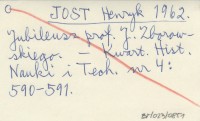 JOST Henryk 1962.
Jubileusz prof. J. Zborow-
skiego. – Kwart. Hist.
Nauki i Tech. nr 4:
590-591.